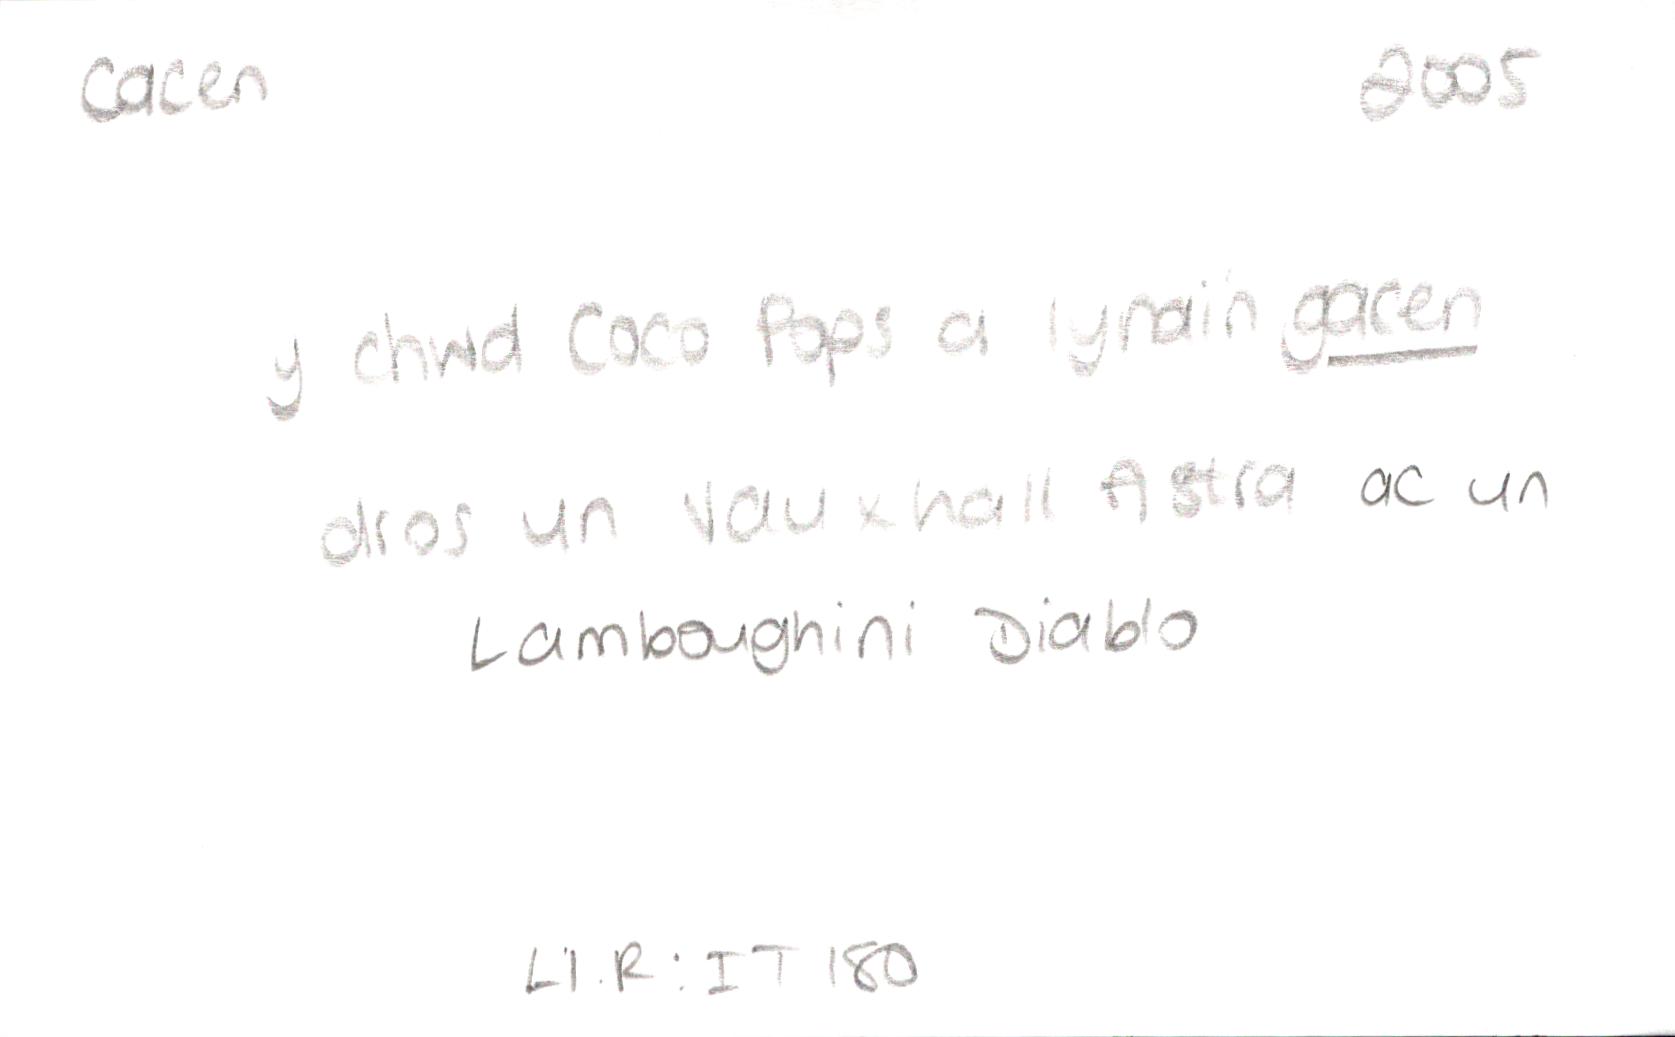 cacen 2005
y chwd Coco Pops a lynain gacen
dros un Vauxhall Astra ac un
Lamboughini Diablo
Ll.R: IT 180